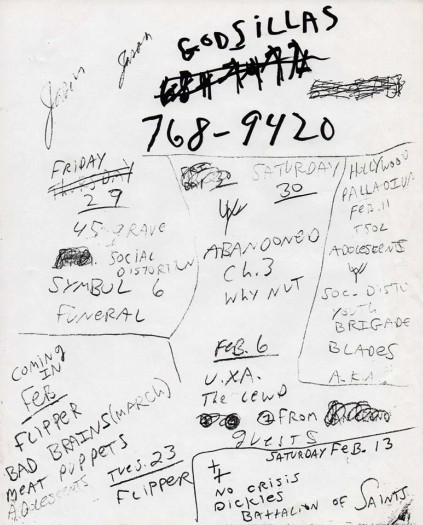 Jasin
Jasan
GODSILLAS
768-9420
FRIDAY
THURSDAY
29
45 GRAVE
+
SOCIAL
DISTORTION
SYMBUL 6
FUNERAL
SATURDAY
30
W/
ABANDONED
Ch.3
WHY NUT
FEB. 6
U.XA.
The LEWD
2 FROM
guests
HOLLYWOOD
PALLADIUM
FEB. 11
TSOL
ADOLESCENTS
W/
SOC. DISTO
YOUTH
BRIGADE
BLADES
A.K.A.
COMING
IN
FEB
FLIPPER
BAD BRAINS (MARCH)
MEAT PUPPETS
ADOLESCENTS
TUES. 23
FLIPPER
SATURDAY FEB. 13
NO CRISIS
DICKIES
BATTALION OF SAINTS